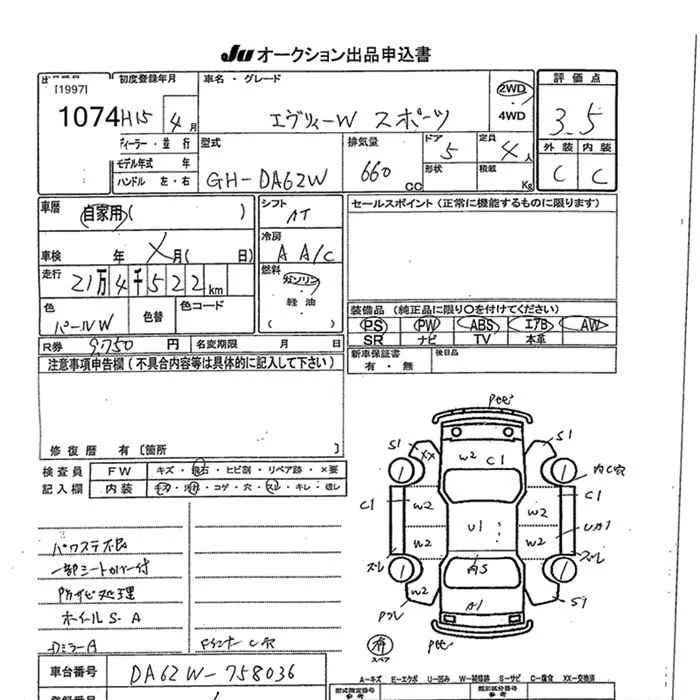 JU オークション出品申込書
[1997]
初度登録年月
車名・グレード
2WD
4WD
評価点
1074
H15
4月
エヴリィーW スポーツ
3.5
ディーラー・並行
型式
排気量
ドア
定員
外装
内装
モデル年式 年
ハンドル 左・右
GH-DA62W
660
CC
5
形状
4人
積載
Kg
C
C
車歴
自家用( )
シフト
AT
セールスポイント(正常に機能するものに限ります)
車検 年 X月( 日)
冷房
A A/C
走行
21万4千522km
燃料
ガソリン
軽油
( )
色
パールW
色替
色コード
装備品(純正品に限り○を付けてください)
PS PW ABS エアB AW
SR ナビ TV 本革
R券 9,750 円
名変期限 月 日
新車保証書
有・無
後日品
注意事項申告欄(不具合内容等は具体的に記入して下さい)
修復歴 有[箇所 ]
検査員
記入欄
FW
キズ・飛石・ヒビ割・リペア跡・×要
内装
キズ・汚れ・コゲ・穴・スレ・キレ・破レ
パワステ不良
一部シートカバー付
防サビ処理
ホイールS.A
S1
XX
W2
C1
S1
C1
W2
W2
C1
U1
W2
W2
ズレ
ズレ
W2
A1
S1
有
スペア
車台番号
DA62W-758036
A-キズ E-エクボ U-凹み W-補修跡 S-サビ C-腐食 XX-交換済